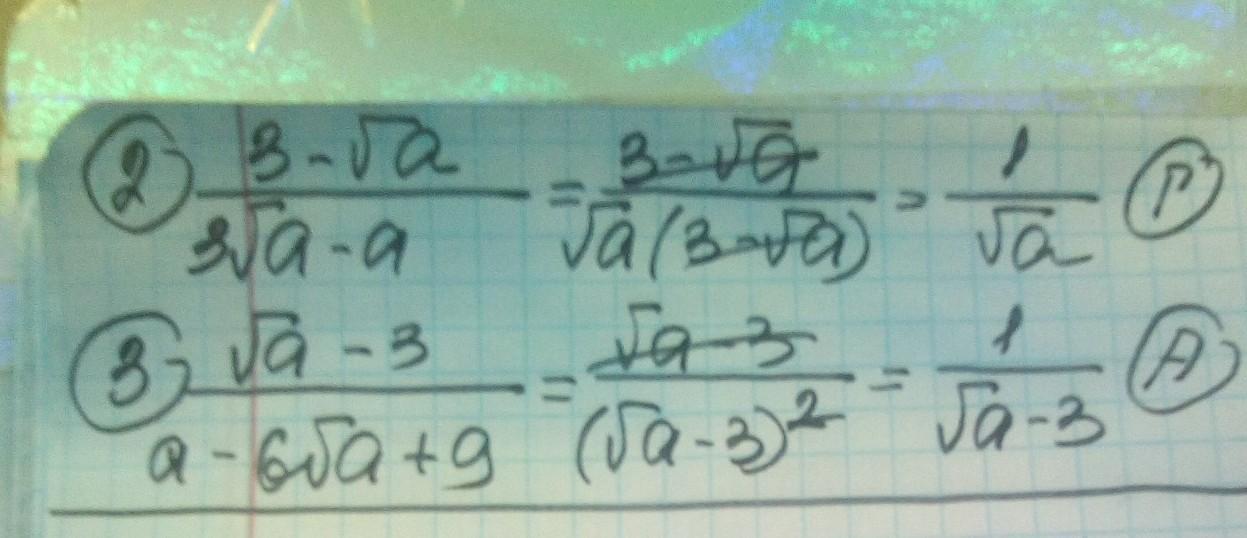 ② (3 - √a)/(3√a - a) = (3 - √a)/(√a(3 - √a)) = 1/√a Ⓖ
③ (√a - 3)/(a - 6√a + 9) = (√a - 3)/((√a - 3)²) = 1/(√a - 3) (А)